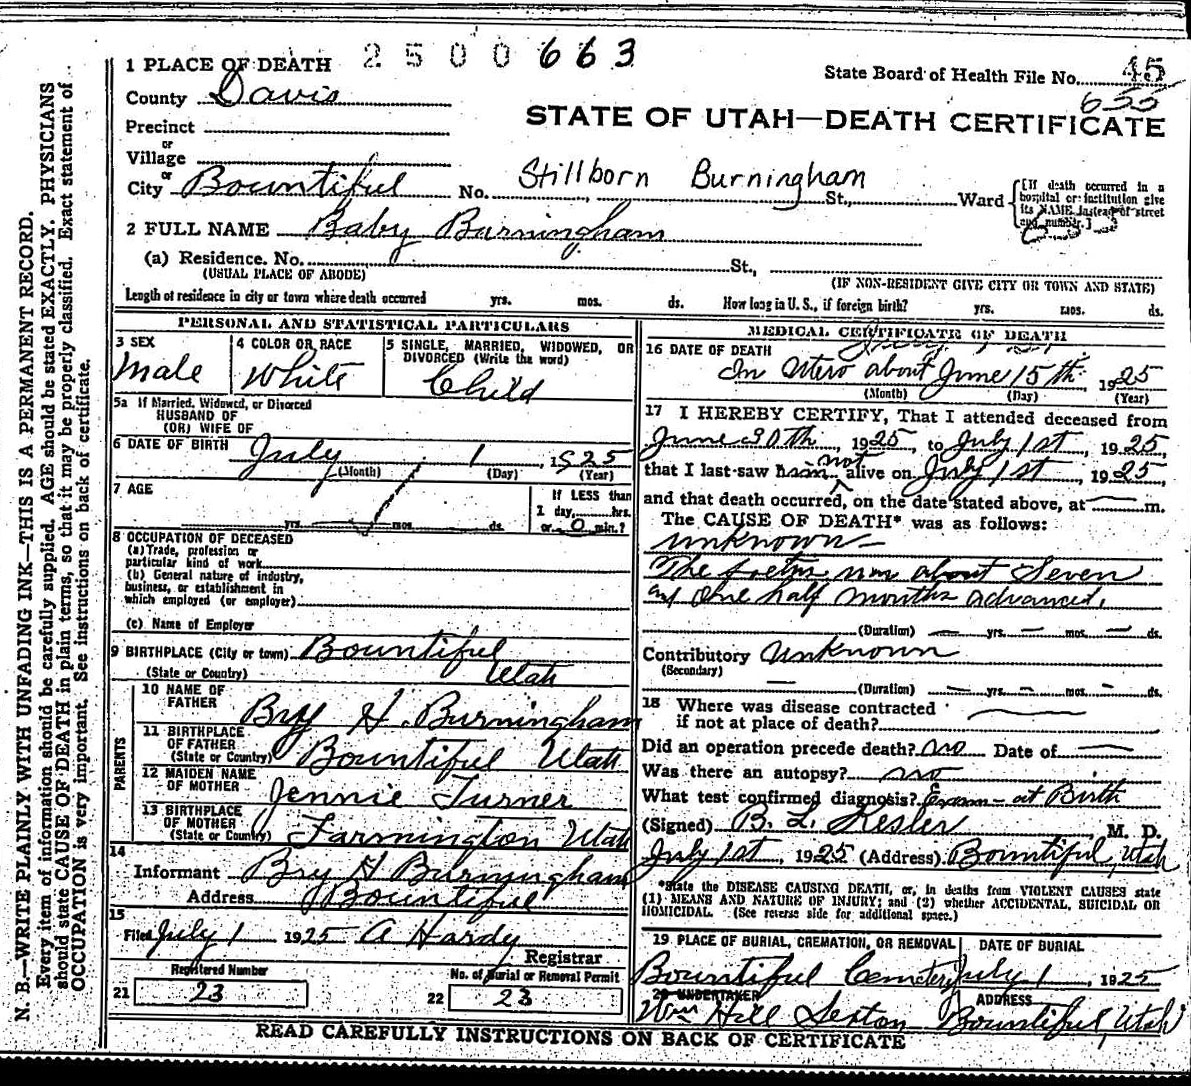 2500663
1 PLACE OF DEATH
State Board of Health File No. 45
County Davis
655
STATE OF UTAH—DEATH CERTIFICATE
Precinct
or
Village
or
City Bountiful No. Stillborn Burningham St., Ward
[If death occurred in a hospital or institution give its NAME instead of street and number.]
2 FULL NAME Baby Burningham
(a) Residence. No. St.,
(USUAL PLACE OF ABODE) (IF NON-RESIDENT GIVE CITY OR TOWN AND STATE)
Length of residence in city or town where death occurred yrs. mos. ds. How long in U. S., if foreign birth? yrs. mos. ds.
PERSONAL AND STATISTICAL PARTICULARS
3 SEX 4 COLOR OR RACE 5 SINGLE, MARRIED, WIDOWED, OR
DIVORCED (Write the word)
Male White Child
5a If Married, Widowed, or Divorced
HUSBAND OF
(OR) WIFE OF
6 DATE OF BIRTH July 1, 1925
(Month) (Day) (Year)
7 AGE If LESS than
1 day, hrs.
yrs. mos. ds. or 0 min.?
8 OCCUPATION OF DECEASED
(a) Trade, profession or
particular kind of work
(b) General nature of industry,
business, or establishment in
which employed (or employer)
(c) Name of Employer
9 BIRTHPLACE (City or town) Bountiful
(State or Country) Utah
PARENTS
10 NAME OF
FATHER Bry H. Burningham
11 BIRTHPLACE
OF FATHER
(State or Country) Bountiful Utah
12 MAIDEN NAME
OF MOTHER Jennie Turner
13 BIRTHPLACE
OF MOTHER
(State or Country) Farmington Utah
14
Informant Bry H Burningham
Address Bountiful
15
Filed July 1 1925 A Hardy
Registrar
Registered Number No. of Burial or Removal Permit
21 23 22 23
MEDICAL CERTIFICATE OF DEATH
16 DATE OF DEATH
In Utero about June 15th 1925
(Month) (Day) (Year)
17 I HEREBY CERTIFY, That I attended deceased from
June 30th, 1925, to July 1st, 1925,
that I last saw him not alive on July 1st, 1925,
and that death occurred, on the date stated above, at m.
The CAUSE OF DEATH* was as follows:
unknown
The foetus was about Seven
and One half months advanced.
(Duration) yrs. mos. ds.
Contributory Unknown
(Secondary)
(Duration) yrs. mos. ds.
18 Where was disease contracted
if not at place of death?
Did an operation precede death? no Date of
Was there an autopsy? no
What test confirmed diagnosis? Exam - at Birth
(Signed) B. L. Kesler, M. D.
July 1st, 1925 (Address) Bountiful, Utah
*State the DISEASE CAUSING DEATH, or, in deaths from VIOLENT CAUSES state
(1) MEANS AND NATURE OF INJURY; and (2) whether ACCIDENTAL, SUICIDAL OR
HOMICIDAL. (See reverse side for additional space.)
19 PLACE OF BURIAL, CREMATION, OR REMOVAL DATE OF BURIAL
Bountiful Cemetery July 1, 1925
20 UNDERTAKER ADDRESS
Wm Hill Sexton Bountiful, Utah
READ CAREFULLY INSTRUCTIONS ON BACK OF CERTIFICATE
N. B.—WRITE PLAINLY WITH UNFADING INK—THIS IS A PERMANENT RECORD.
Every item of information should be carefully supplied. AGE should be stated EXACTLY. PHYSICIANS
should state CAUSE OF DEATH in plain terms, so that it may be properly classified. Exact statement of
OCCUPATION is very important. See instructions on back of certificate.